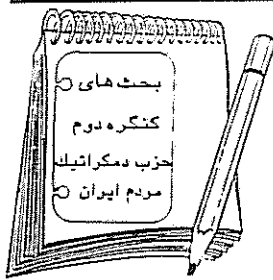 بحث های
کنگره دوم
حزب دمکراتیك
مردم ایران